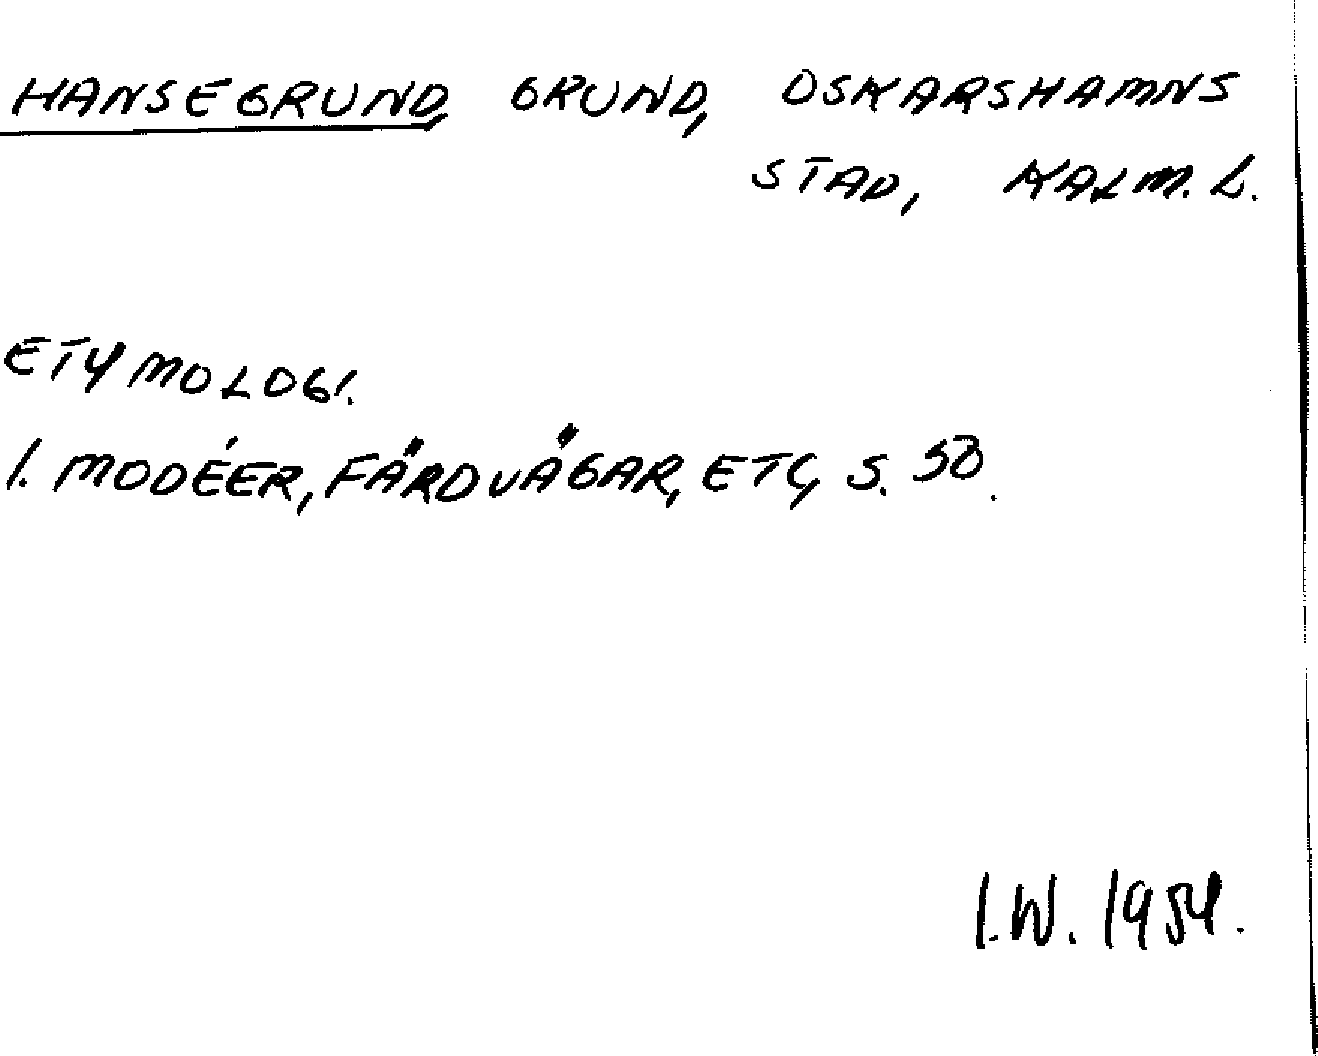 HANSEGRUND, GRUND, OSKARSHAMNS
STAD, KALM. L.
ETYMOLOGI.
I. MODÉER, FÄRDVÄGAR, ETC, S. 58.
I.W. 1954.